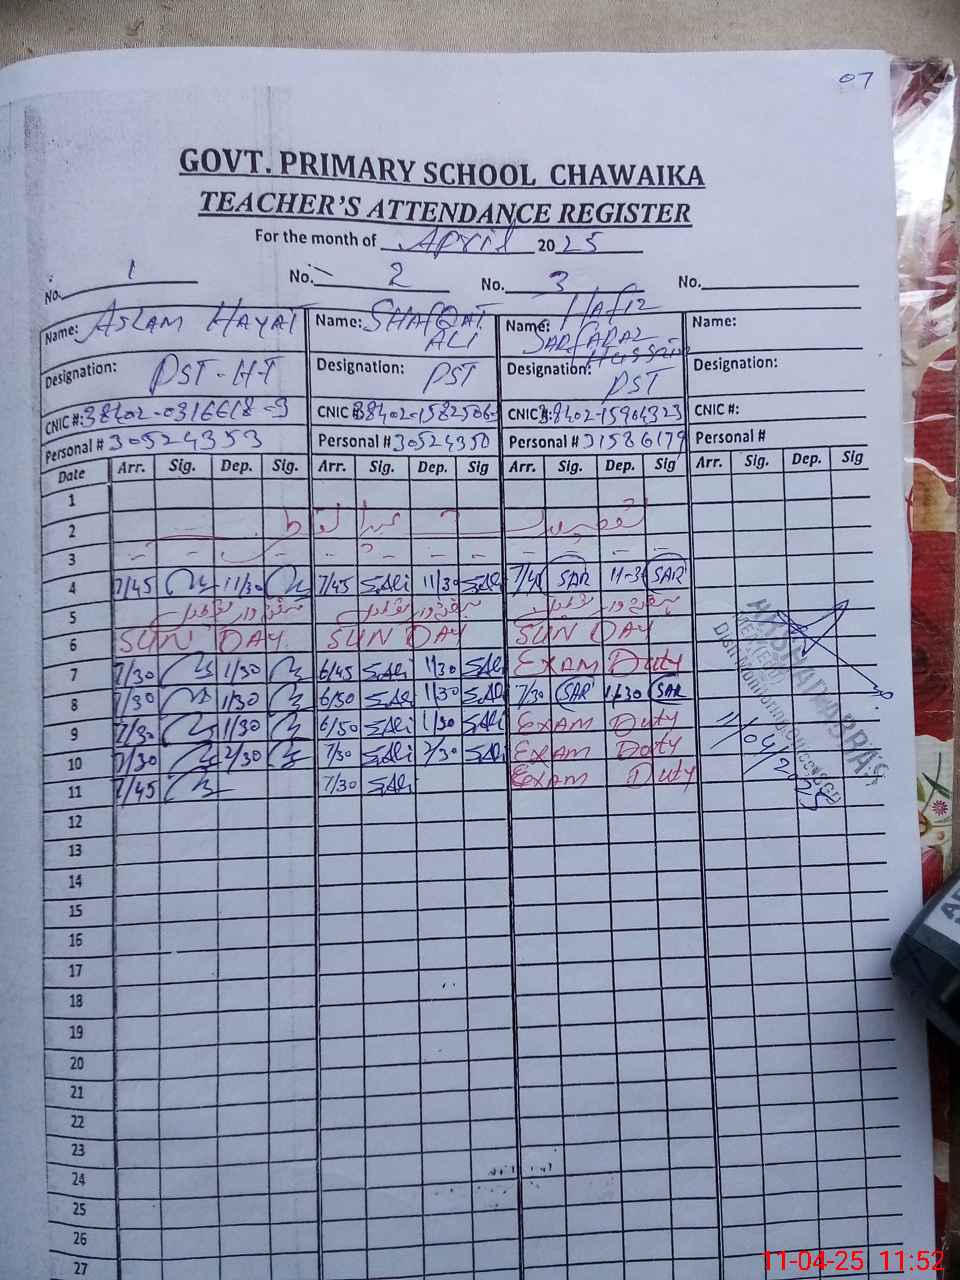 07
GOVT. PRIMARY SCHOOL CHAWAIKA
TEACHER'S ATTENDANCE REGISTER
For the month of April 2025
No. 1 No. 2 No. 3 No.
Name: ASLAM HAYAT Name: SHAFQAT ALI Name: HAFIZ SARFARAZ Hussain Name:
Designation: PST-HT Designation: PST Designation: PST Designation:
CNIC #: 38402-0316618-9 CNIC # 38402-1582506- CNIC # 38402-15904323 CNIC #:
Personal # 30524353 Personal # 30524350 Personal # 31586179 Personal #
Date Arr. Sig. Dep. Sig. Arr. Sig. Dep. Sig Arr. Sig. Dep. Sig Arr. Sig. Dep. Sig
1
2
3
4 7/45 11/30 7/45 S.Ali 11/30 S.Ali 7/45 SAR 11-30 SAR
5
6 SUN DAY SUN DAY SUN DAY
7 7/30 1/30 6/45 S.Ali 1/30 S.Ali EXAM Duty
8 7/30 1/30 6/50 S.Ali 1/30 S.Ali 7/30 SAR 1/30 SAR
9 7/30 1/30 6/50 S.Ali 1/30 S.Ali EXAM Duty
10 7/30 2/30 7/30 S.Ali 2/30 S.Ali EXAM Duty
11 7/45 7/30 S.Ali EXAM Duty
11/04/2025
12
13
14
15
16
17
18
19
20
21
22
23
24
25
26
27
11-04-25 11:52